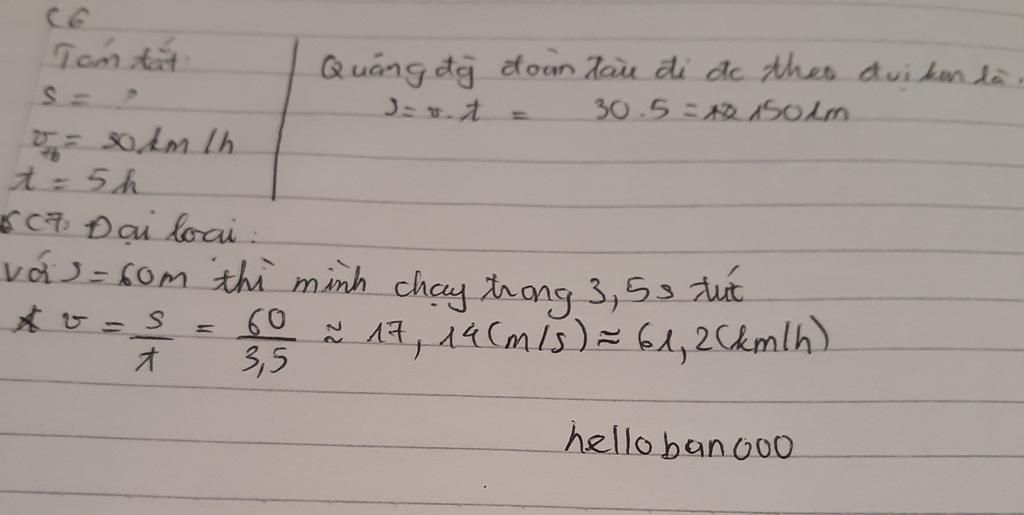 C6
Tóm tắt:
s = ?
v_tb = 30km/h
t = 5h
Quãng đg đoàn tàu đi đc theo đvị km là.
s = v.t = 30.5 = 150km
C7: Đại loại:
với s = 60m thì mình chạy trong 3,5s tức
v = s/t = 60/3,5 ≈ 17,14(m/s) ≈ 61,2(km/h)
hellobanooo